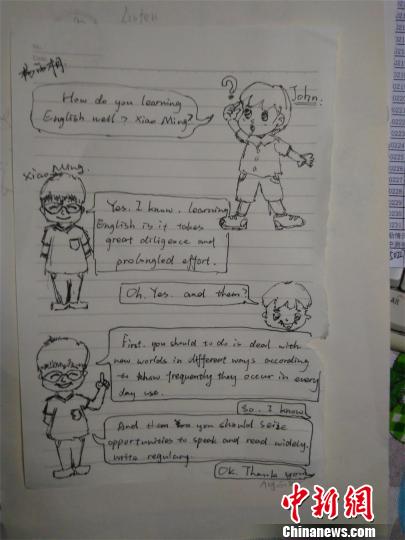 Listen
John.
How do you learning
English well > Xiao Ming?
xiao Ming.
Yes. I know. learning
English is it takes
great diligence and
prolangled effort.
Oh. Yes. and them?
First. you should to do is deal with
new worlds in different ways according
to know frequently they occur in every
day use.
So. I know
And them you should seize
opportunities to speak and read widely.
write regulany.
Ok. Thank you
中新网
Chinanews.com